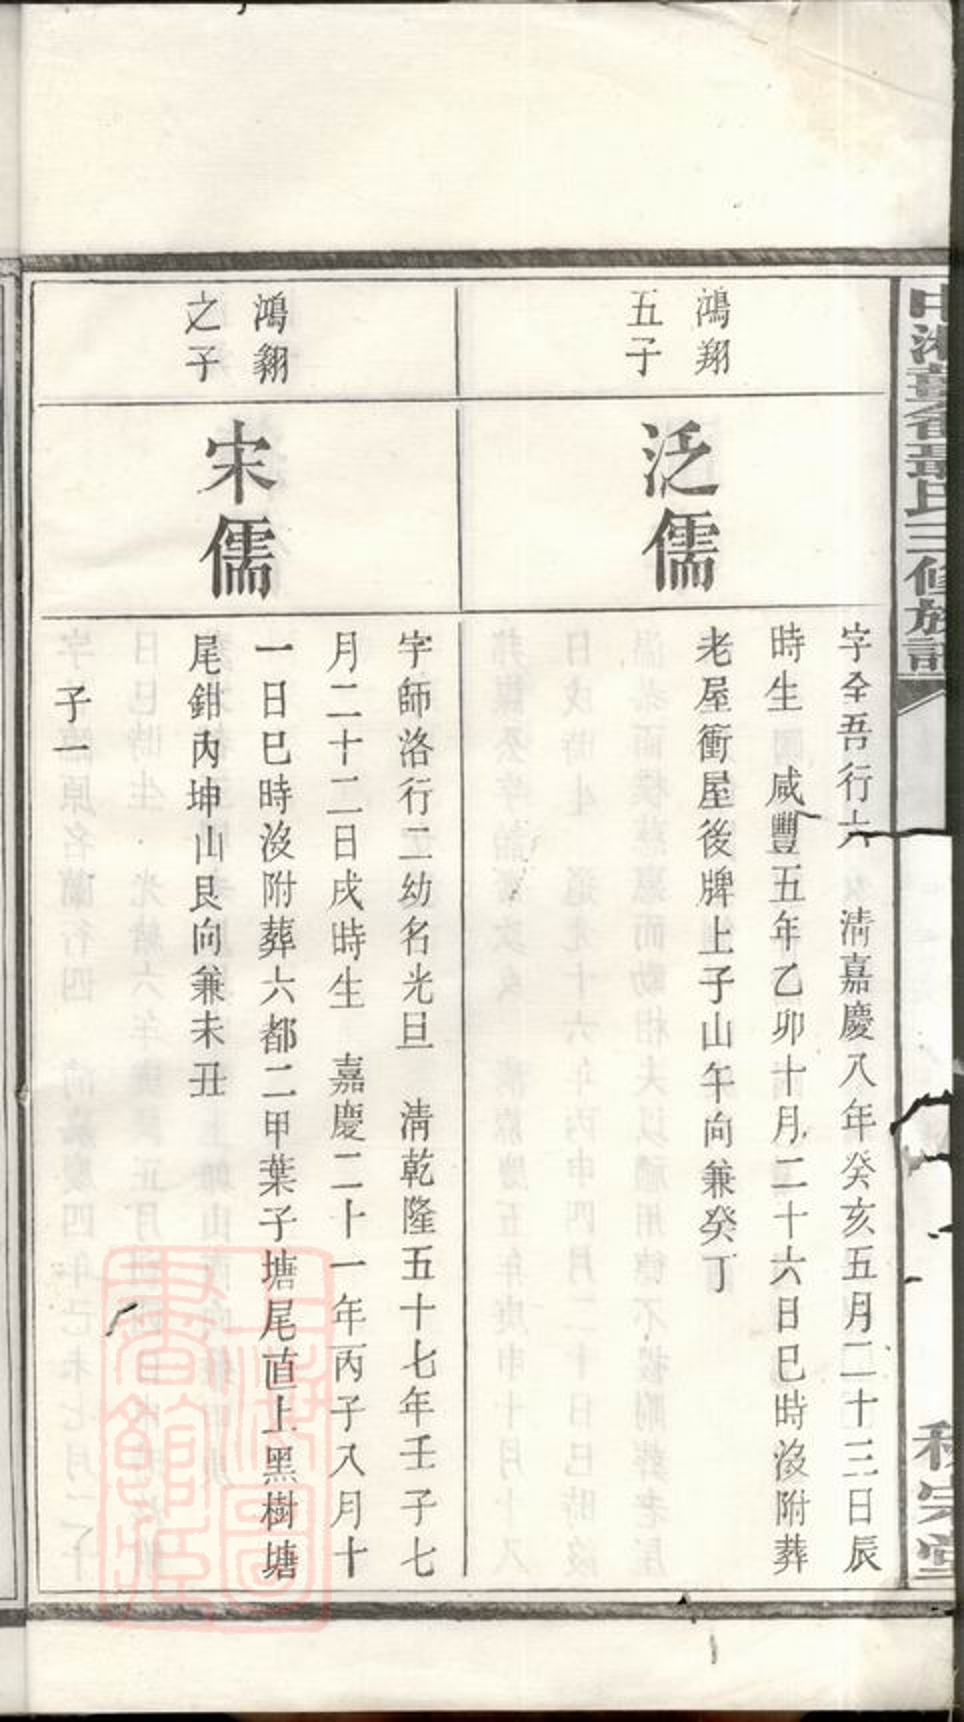 三修族
鴻翔
五子
泛儒
字全吾行六　清嘉慶八年癸亥五月二十三日辰
時生　咸豐五年乙卯十月二十六日巳時沒附葬
老屋衝屋後牌上子山午向兼癸丁
鴻翱
之子
宋儒
字師洛行二幼名光旦　清乾隆五十七年壬子七
月二十二日戌時生　嘉慶二十一年丙子八月十
一日巳時沒附葬六都二甲葉子塘尾直上黑樹塘
尾鉗內坤山艮向兼未丑
子一
上海圖
書館藏